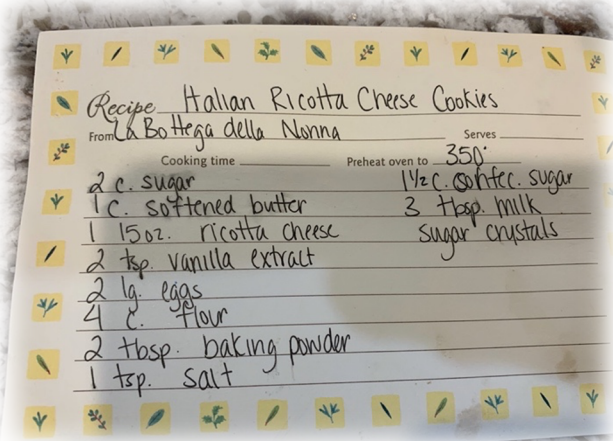 Recipe Italian Ricotta Cheese Cookies
From La Bottega della Nonna Serves
Cooking time Preheat oven to 350°
2 c. sugar
1 c. softened butter
1 15oz. ricotta cheese
2 tsp. vanilla extract
2 lg. eggs
4 c. flour
2 tbsp. baking powder
1 tsp. salt
1 1/2 c. confec. sugar
3 tbsp. milk
sugar crystals